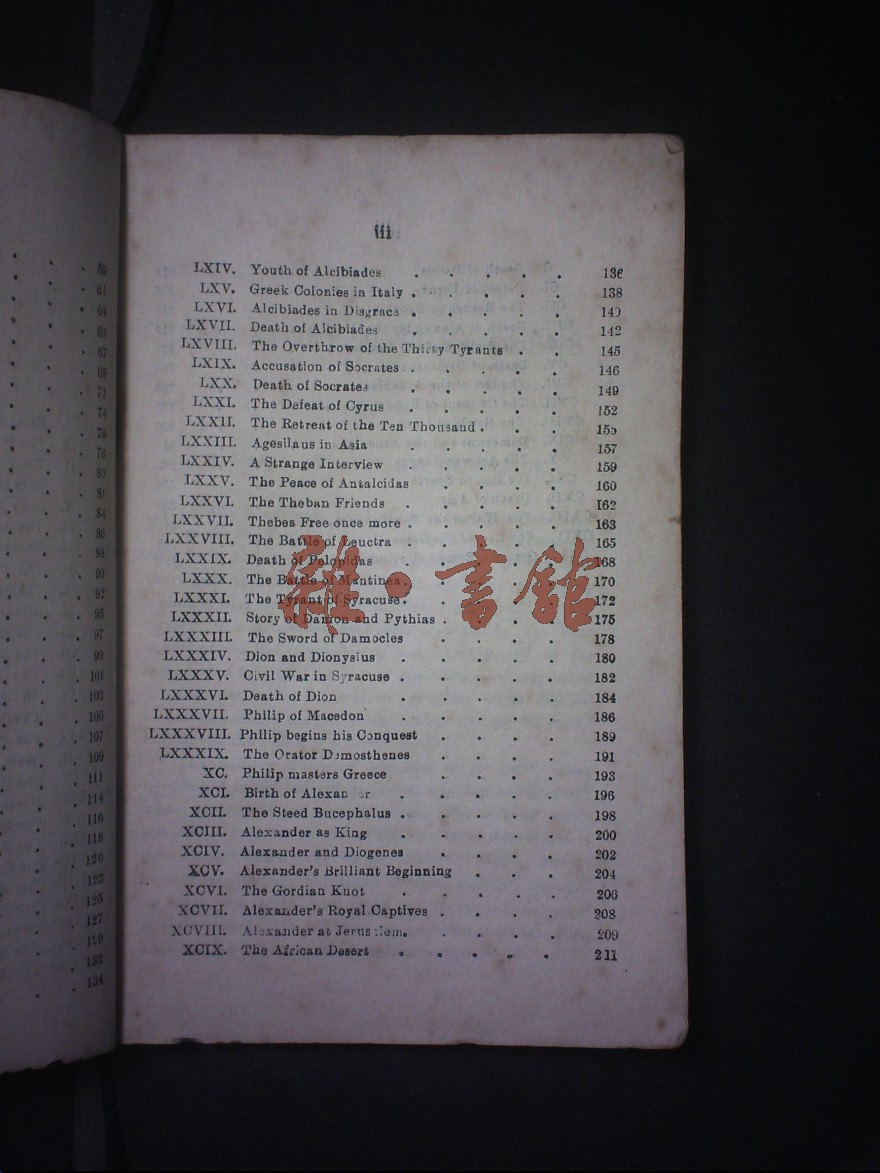 60
61
64
65
67
68
71
74
76
78
80
81
84
86
88
90
92
95
97
99
101
103
105
107
109
111
114
116
118
120
123
125
127
129
132
134
iii
LXIV. Youth of Alcibiades . . . . . 136
LXV. Greek Colonies in Italy . . . . . 138
LXVI. Alcibiades in Disgrace . . . . . 140
LXVII. Death of Alcibiades . . . . . 142
LXVIII. The Overthrow of the Thirty Tyrants . . 145
LXIX. Accusation of Socrates . . . . . 146
LXX. Death of Socrates . . . . . 149
LXXI. The Defeat of Cyrus . . . . . 152
LXXII. The Retreat of the Ten Thousand . . . 155
LXXIII. Agesilaus in Asia . . . . . 157
LXXIV. A Strange Interview . . . . . 159
LXXV. The Peace of Antalcidas . . . . 160
LXXVI. The Theban Friends . . . . . 162
LXXVII. Thebes Free once more . . . . . 163
LXXVIII. The Battle of Leuctra . . . . . 165
LXXIX. Death of Pelopidas . . . . . 168
LXXX. The Battle of Mantinea . . . . . 170
LXXXI. The Tyrant of Syracuse . . . . . 172
LXXXII. Story of Damon and Pythias . . . . 175
LXXXIII. The Sword of Damocles . . . . 178
LXXXIV. Dion and Dionysius . . . . . 180
LXXXV. Civil War in Syracuse . . . . . 182
LXXXVI. Death of Dion . . . . . 184
LXXXVII. Philip of Macedon . . . . . 186
LXXXVIII. Philip begins his Conquest . . . . 189
LXXXIX. The Orator Demosthenes . . . . 191
XC. Philip masters Greece . . . . 193
XCI. Birth of Alexander . . . . . 196
XCII. The Steed Bucephalus . . . . . 198
XCIII. Alexander as King . . . . . 200
XCIV. Alexander and Diogenes . . . . 202
XCV. Alexander's Brilliant Beginning . . . 204
XCVI. The Gordian Knot . . . . . 206
XCVII. Alexander's Royal Captives . . . . 208
XCVIII. Alexander at Jerusalem. . . . . 209
XCIX. The African Desert . . . . . 211
雜·書館